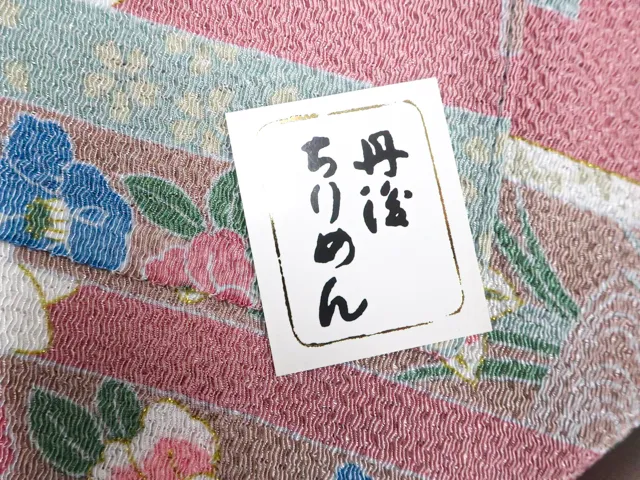 丹後
ちりめん